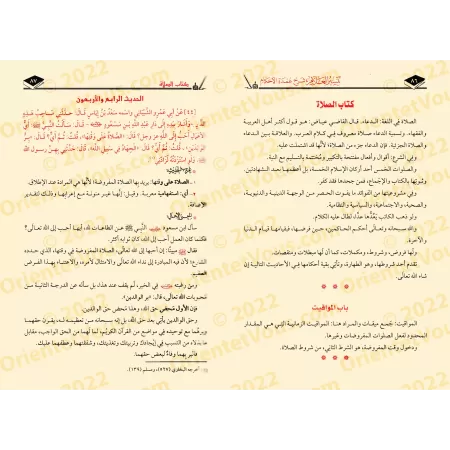 ٨٦
تيسير العلام شرح عمدة الأحكام
كتاب الصلاة
الصلاة في اللغة: الدعاء، قال القاضي عياض: هو قول أكثر أهل العربية
والفقهاء. وتسمية الدعاء صلاة معروف في كلام العرب، والعلاقة بين الدعاء
والصلاة الجزئية. فإن الدعاء جزء من الصلاة؛ لأنها قد اشتملت عليه.
وفي الشرع: أقوال وأفعال مفتتحة بالتكبير ومختتمة بالتسليم مع النية.
والصلوات الخمس أحد أركان الإسلام الخمسة، بل أعظمها بعد الشهادتين
وثبوتها بالكتاب والسنة والإجماع، فمن جحدها فقد كفر.
وفي مشروعيتها من الفوائد ما يفوت الحصر من الوجهة الدينية والدنيوية،
والصحية، والاجتماعية، والسياسية والنظامية.
ولو ذهب الكاتب يَعُدُّها عدًّا لطال عليه الكلام.
والله سبحانه وتعالى أحكم الحاكمين، حين فرضها على عباده، لقيامها قيام الدنيا
والآخرة.
ولها فروض، وشروط، ومكملات، كما أن لها مبطلات ومنقصات.
تقدم أحد شروطها، وهو الطهارة، وتأتي بقية أحكامها في الأحاديث التالية إن
شاء الله تعالى.
* * *
باب المواقيت
المواقيت: جمع ميقات والمراد هنا: المواقيت الزمانية التي هي المقدار
المحدود لفعل الصلوات المفروضات وغيرها.
ودخول وقت المفروضة، هو الشرط الثاني، من شروط الصلاة.
* * *
٨٧
كتاب الصلاة
الحديث الرابع والأربعون
[٤٤] عَنْ أَبِي عَمْرٍو الشَّيْبَانِي وَاسْمُهُ سَعْدُ بْنُ إِيَاسٍ قَالَ: حَدَّثَنِي صَاحِبُ هَذِهِ
الدَّارِ وَأَشَارَ بِيَدِهِ إِلَى دَارِ عَبْدِ اللَّهِ بْنِ مَسْعُودٍ قَالَ: سَأَلْتُ النَّبِيَّ ﷺ أَيُّ
الأَعْمَالِ أَحَبُّ إِلَى اللَّهِ عَزَّ وَجَلَّ؟ قَالَ: «الصَّلاةُ عَلَى وَقْتِهَا». قُلْتُ: ثُمَّ أَيُّ؟ قَالَ:
قُلْتُ: ثُمَّ أَيُّ؟ قَالَ: «الْجِهَادُ فِي سَبِيلِ اللَّهِ» قَالَ: حَدَّثَنِي بِهِنَّ رسول الله
ﷺ وَلَوِ اسْتَزَدْتُهُ لَزَادَنِي
١ـ الصلاة على وقتها: يريد بها الصلاة المفروضة؛ لأنها هي المرادة عند الإطلاق.
٢ـ أي: استفهامية معربة. وقيل: إنها غير منونة مع
الإضافة.
سأل ابن مسعود النَّبِي ﷺ عن الطاعات لله، أيها أحب إلى الله تعالى؟
فكلما كان العمل أحب إلى الله، كان ثوابه أكثر.
فقال ﷺ مبينًا: إن أحبها إلى الله تعالى، الصلاة المفروضة في وقتها، الذي حدده
الشارع؛ لأن فيه المبادرة إلى نداء الله تعالى والامتثال لأمره، والاعتناء بهذا الفرض
العظيم.
ومن رغبته في الخير، لم يقف عند هذا، بل سأله عن الدرجة الثانية من
محبوبات الله تعالى، قال: «بر الوالدين».
فإن الأول محض حق الله، وهذا محض حق الوالدين.
وحق الوالدين يأتي بعد حق الله، بل إنه سبحانه من تعظيمه له، يقرن حقهما
وبرهما مع توحيده في مواضع من القرآن الكريم، لما لهما من الحق الواجب، مقابل
ما بذلاه من التسبب في إيجادك وتربيتك وتغذيتك، وشفقتهما وعطفهما عليك.
فالبر بهما وفاء لبعض حقهما.
أخرجه البخاري (٥٢٧)، ومسلم (١٣٩).
© 2022
OrientetVous